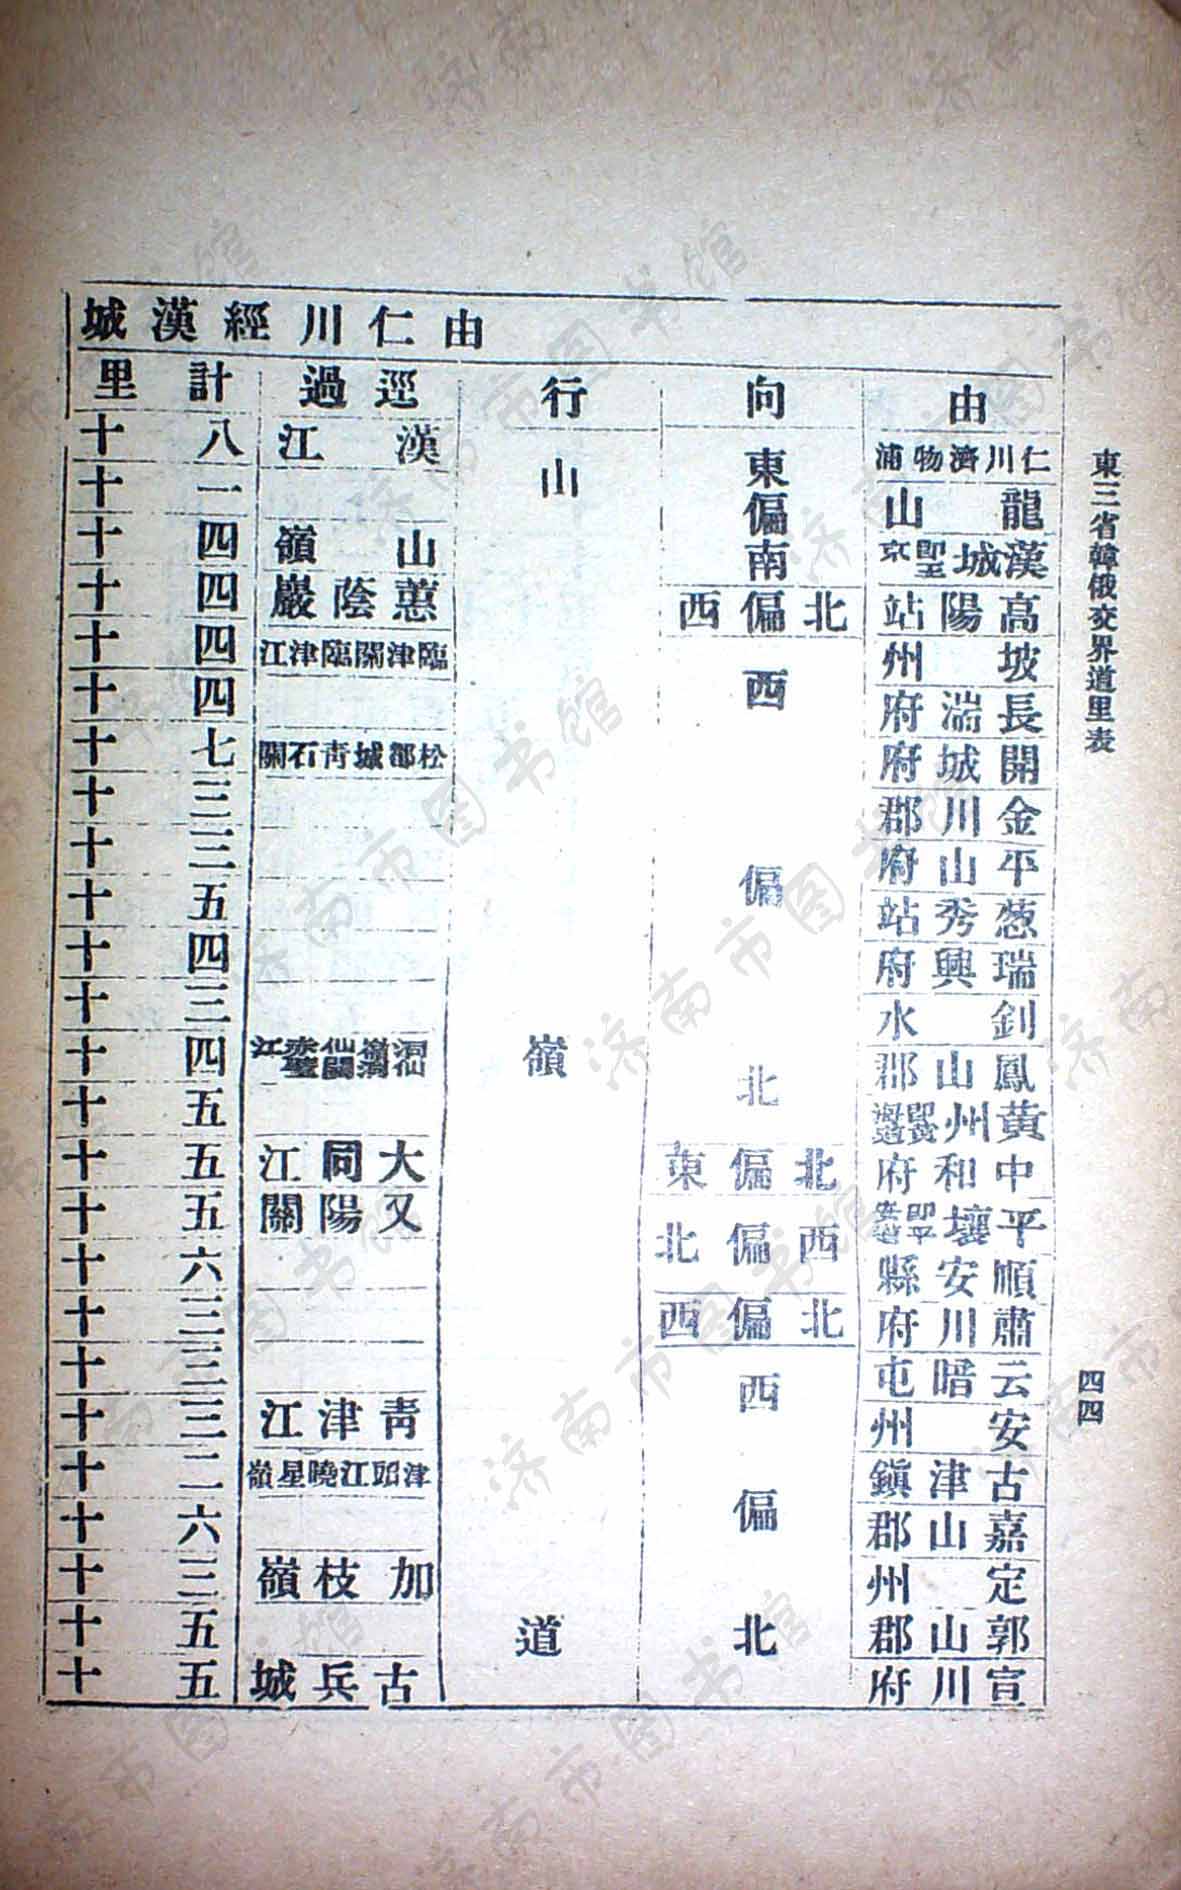 東三省韓俄交界道里表
四四
由仁川經漢城
由 向 行 逕過 計里
仁川濟物浦 東偏南 山嶺道 漢江 八十
龍山 一十
漢城 山嶺 四十
高陽站 北偏西 蕙陰巖 四十
坡州 西偏北 臨津關臨津江 四十
長湍府 四十
開城府 松都城靑石關 七十
金川郡 三十
平山府 三十
葱秀站 五十
瑞興府 四十
釗水 三十
鳳山郡 四十
黃州 五十
中和府 北偏東 大同江 五十
平壤 西偏北 又陽關 五十
順安縣 六十
肅川府 北偏西 三十
云暗屯 西偏北 三十
安州 靑津江 三十
古津鎭 津頭江曉星嶺 二十
嘉山郡 六十
定州 加枝嶺 三十
郭山郡 五十
宣川府 古兵城 五十